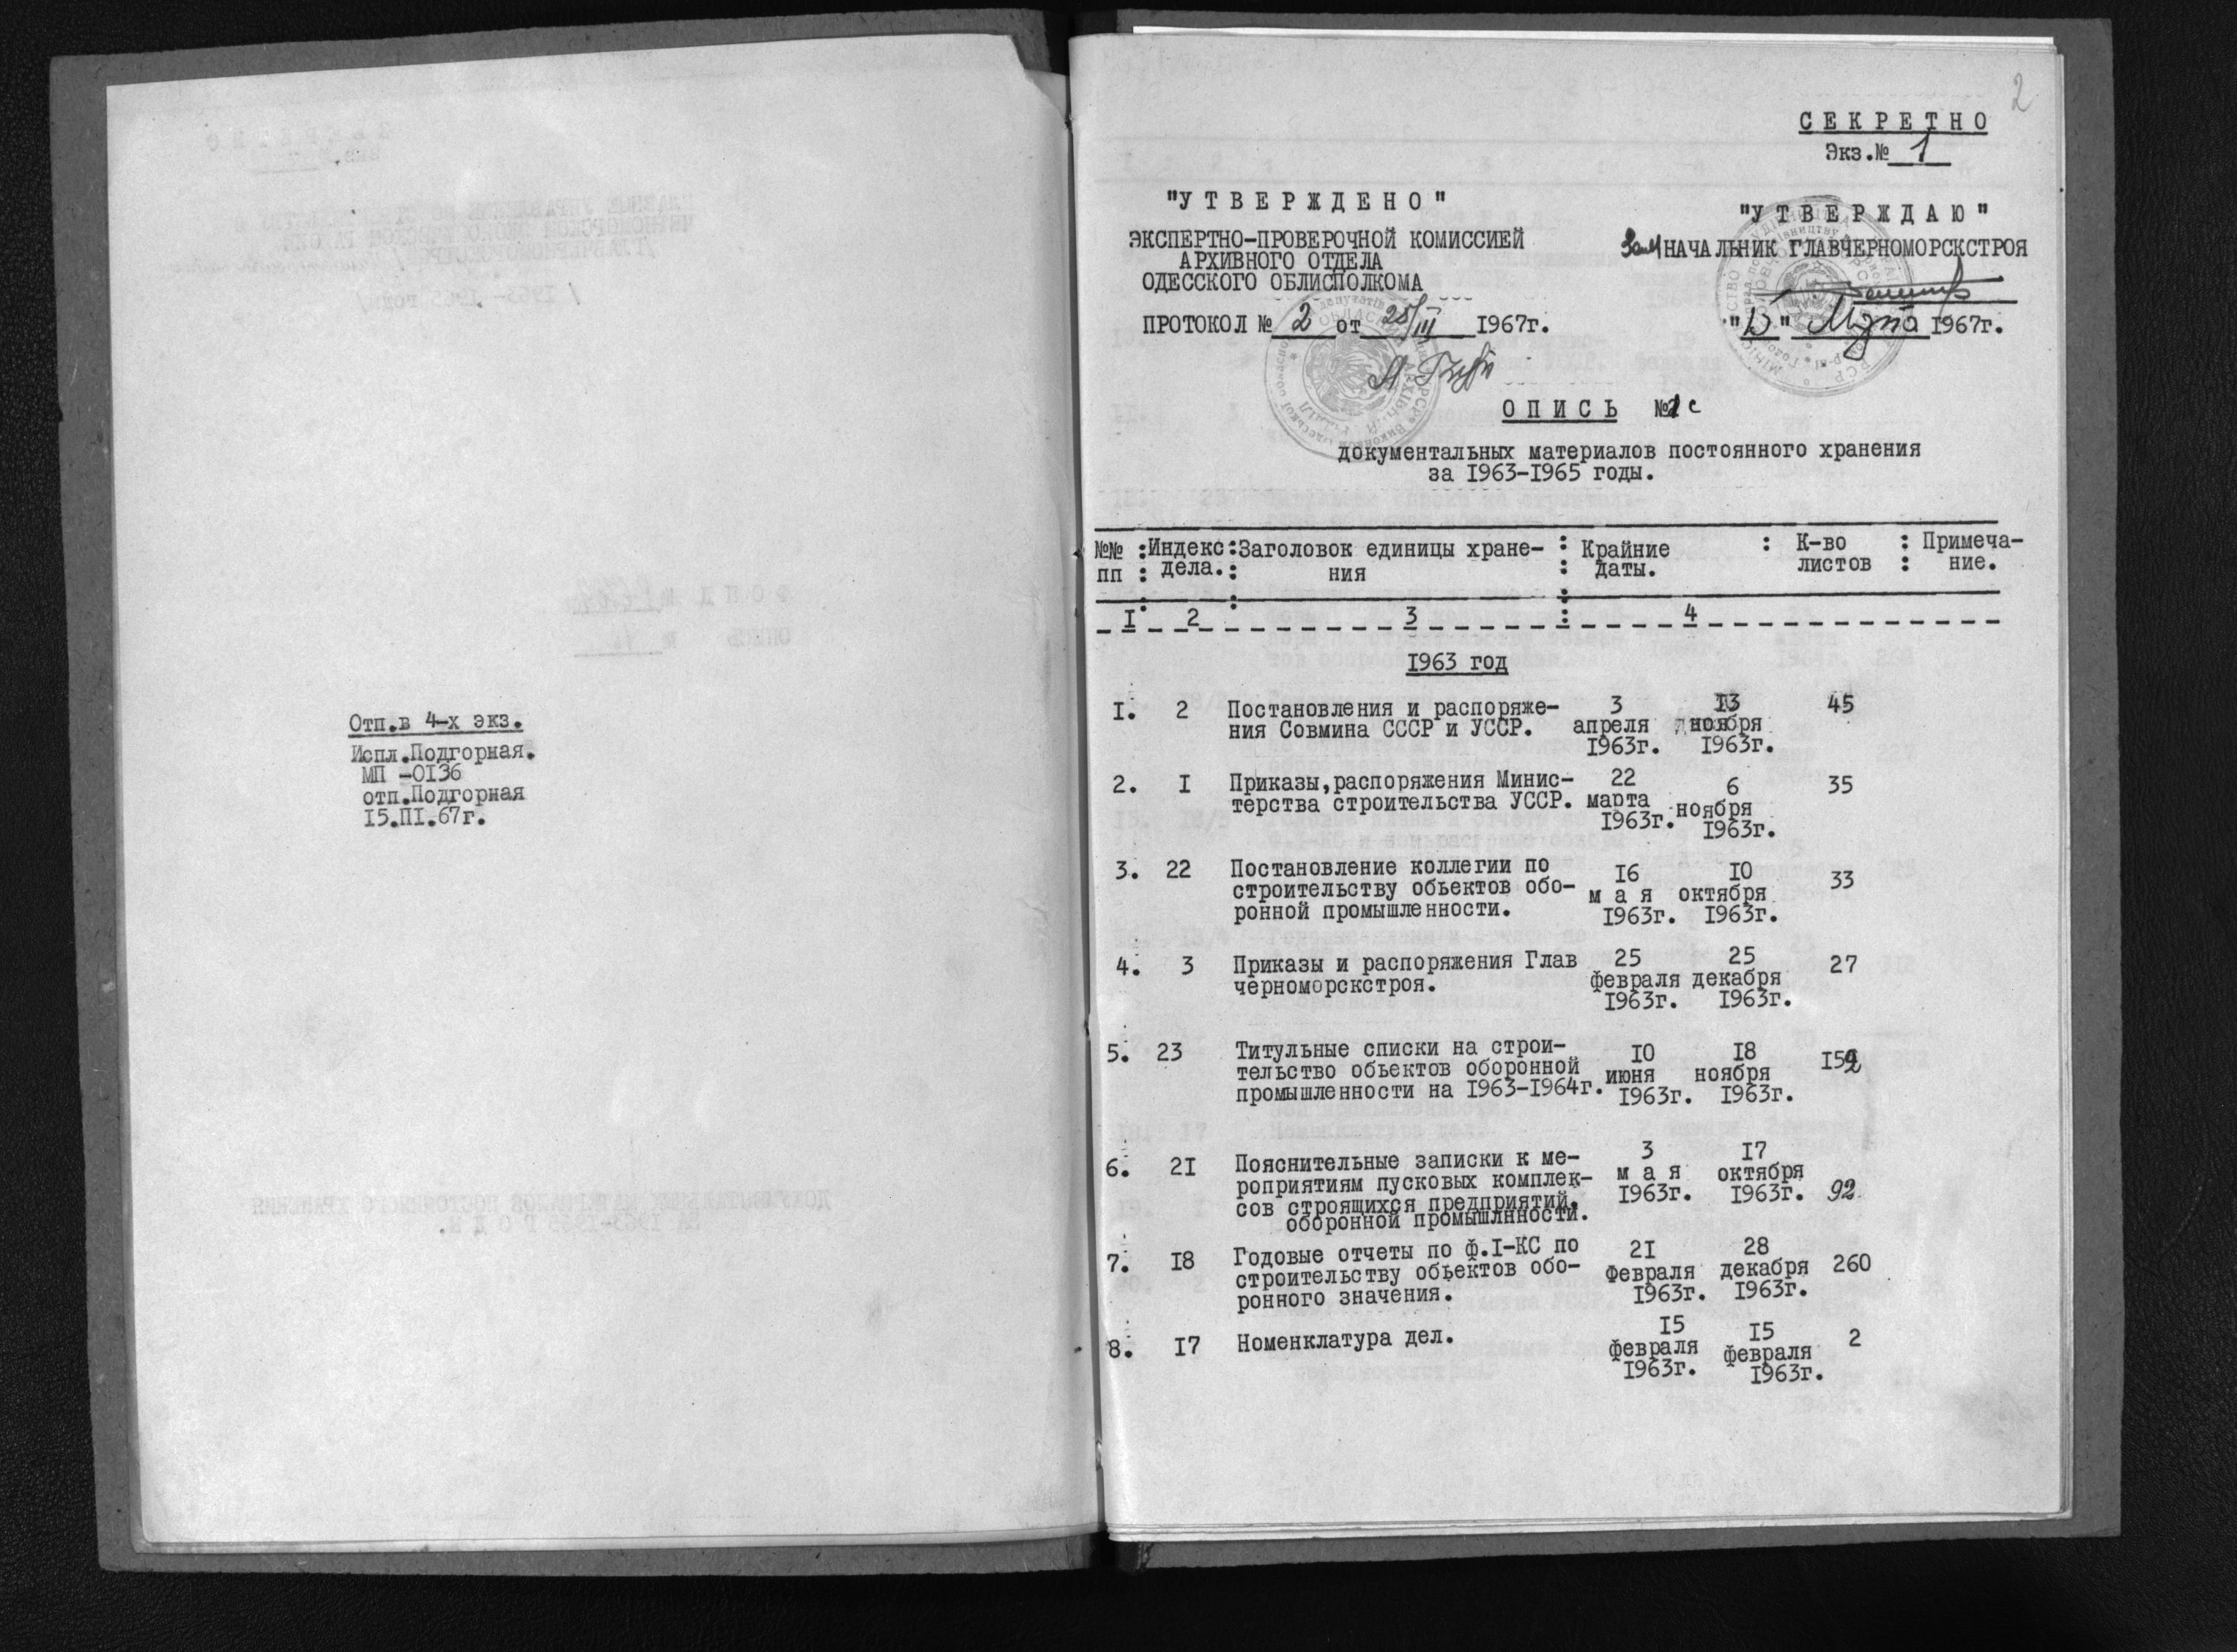 Отп.в 4-х экз.
Испл.Подгорная.
МП -0136
отп.Подгорная
15.III.67г.
2
СЕКРЕТНО
Экз.№ 1
"УТВЕРЖДЕНО"
ЭКСПЕРТНО-ПРОВЕРОЧНОЙ КОМИССИЕЙ
АРХИВНОГО ОТДЕЛА
ОДЕССКОГО ОБЛИСПОЛКОМА
ПРОТОКОЛ № 2 от 25/III 1967г.
"УТВЕРЖДАЮ"
Зам НАЧАЛЬНИК ГЛАВЧЕРНОМОРСКСТРОЯ
Марта 1967г.
ОПИСЬ №1с
документальных материалов постоянного хранения
за 1963-1965 годы.
№№ : Индекс : Заголовок единицы хране- : Крайние : К-во : Примеча-
пп : дела. : ния : даты. листов : ние.
1 2 3 4
1963 год
1. 2 Постановления и распоряже- 3 13 45
ния Совмина СССР и УССР. апреля ноября
1963г. 1963г.
2. 1 Приказы,распоряжения Минис- 22 6 35
терства строительства УССР. марта ноября
1963г. 1963г.
3. 22 Постановление коллегии по 16 10 33
строительству обьектов обо- м а я октября
ронной промышленности. 1963г. 1963г.
4. 3 Приказы и распоряжения Глав 25 25 27
черноморскстроя. февраля декабря
1963г. 1963г.
5. 23 Титульные списки на строи- 10 18 152
тельство обьектов оборонной июня ноября
промышленности на 1963-1964г. 1963г. 1963г.
6. 21 Пояснительные записки к ме- 3 17
роприятиям пусковых комплек- м а я октября
сов строящихся предприятий. 1963г. 1963г. 92
оборонной промышлнности.
7. 18 Годовые отчеты по ф.1-КС по 21 28
строительству обьектов обо- февраля декабря 260
ронного значения. 1963г. 1963г.
8. 17 Номенклатура дел. 15 15 2
февраля февраля
1963г. 1963г.